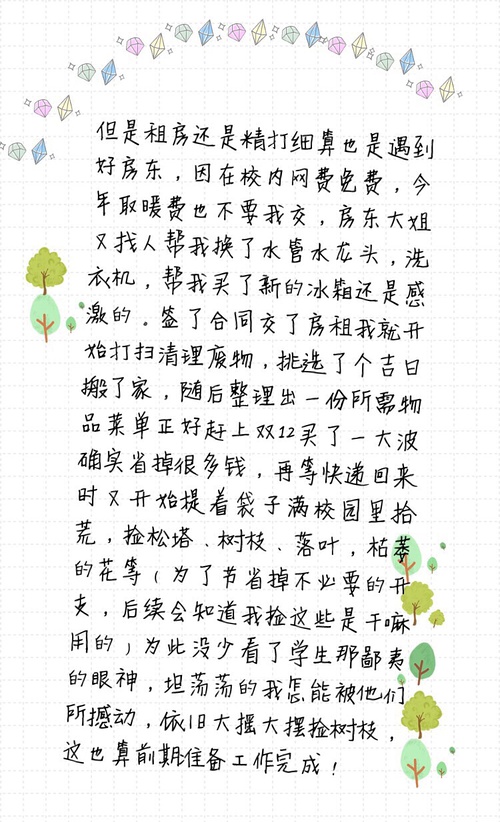 但是租房还是精打细算也是遇到
好房东，因在校内网费免费，今
年取暖费也不要我交，房东大姐
又找人帮我换了水管水龙头，洗
衣机，帮我买了新的冰箱还是感
激的。签了合同交了房租我就开
始打扫清理废物，挑选了个吉日
搬了家，随后整理出一份所需物
品菜单正好赶上双12买了一大波
确实省掉很多钱，再等快递回来
时又开始提着袋子满校园里拾
荒，捡松塔、树枝、落叶，枯萎
的花等（为了节省掉不必要的开
支，后续会知道我捡这些是干嘛
用的）为此没少看了学生那鄙夷
的眼神，坦荡荡的我怎能被他们
所撼动，依旧大摇大摆捡树枝，
这也算前期准备工作完成！